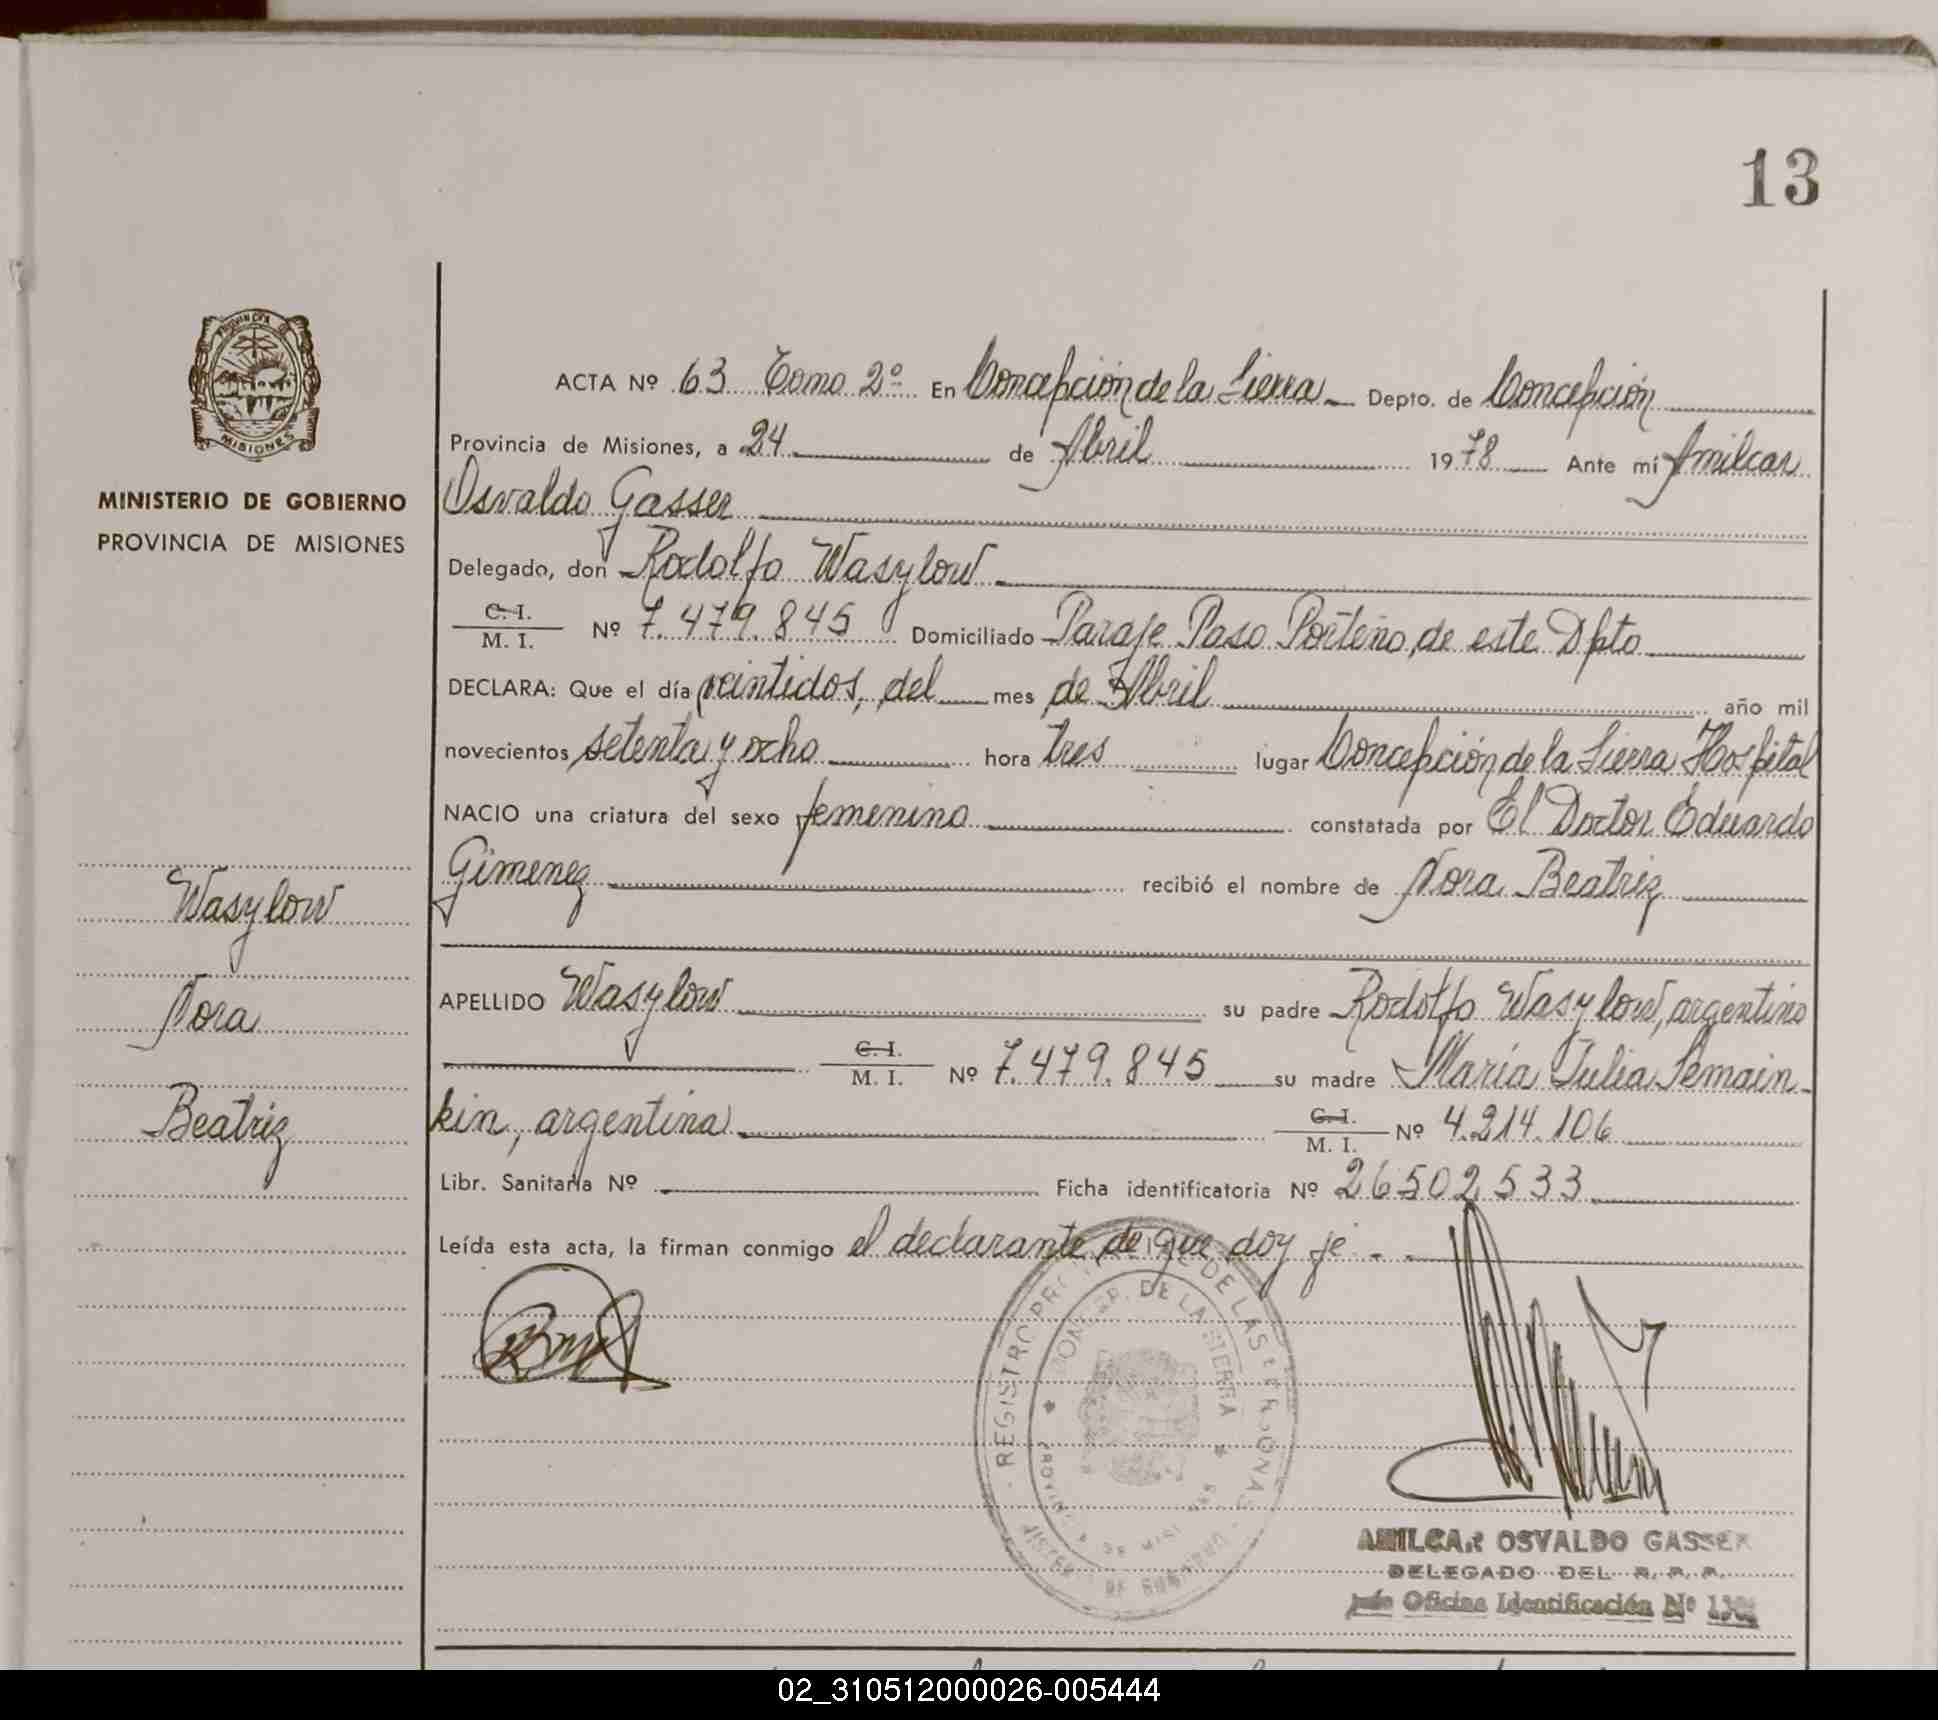 13
PROVINCIA DE
MISIONES
MINISTERIO DE GOBIERNO
PROVINCIA DE MISIONES
ACTA Nº 63 Tomo 2º En Concepción de la Sierra Depto. de Concepción
Provincia de Misiones, a 24 de Abril 1978 Ante mi Amilcar
Osvaldo Gasser
Delegado, don Rodolfo Wasylow
C. I.
M. I. Nº 7.479.845 Domiciliado Paraje Paso Porteño, de este Dpto
DECLARA: Que el día veintidos, del mes de Abril año mil
novecientos setenta y ocho hora tres lugar Concepción de la Sierra Hospital
NACIO una criatura del sexo femenino constatada por El Doctor Eduardo
Gimenez recibió el nombre de Nora Beatriz
Wasylow
Nora
Beatriz
APELLIDO Wasylow su padre Rodolfo Wasylow, argentino
C. I.
M. I. Nº 7.479.845 su madre María Julia Semain-
kin, argentina C. I.
M. I. Nº 4.214.106
Libr. Sanitaria Nº Ficha identificatoria Nº 26502533
Leída esta acta, la firman conmigo el declarante de que doy fe - -
REGISTRO DE LAS PERSONAS
DE LA SIERRA
AMILCAR OSVALDO GASSER
DELEGADO DEL R. P. P.
Jefe Oficina Identificación Nº
02_310512000026-005444